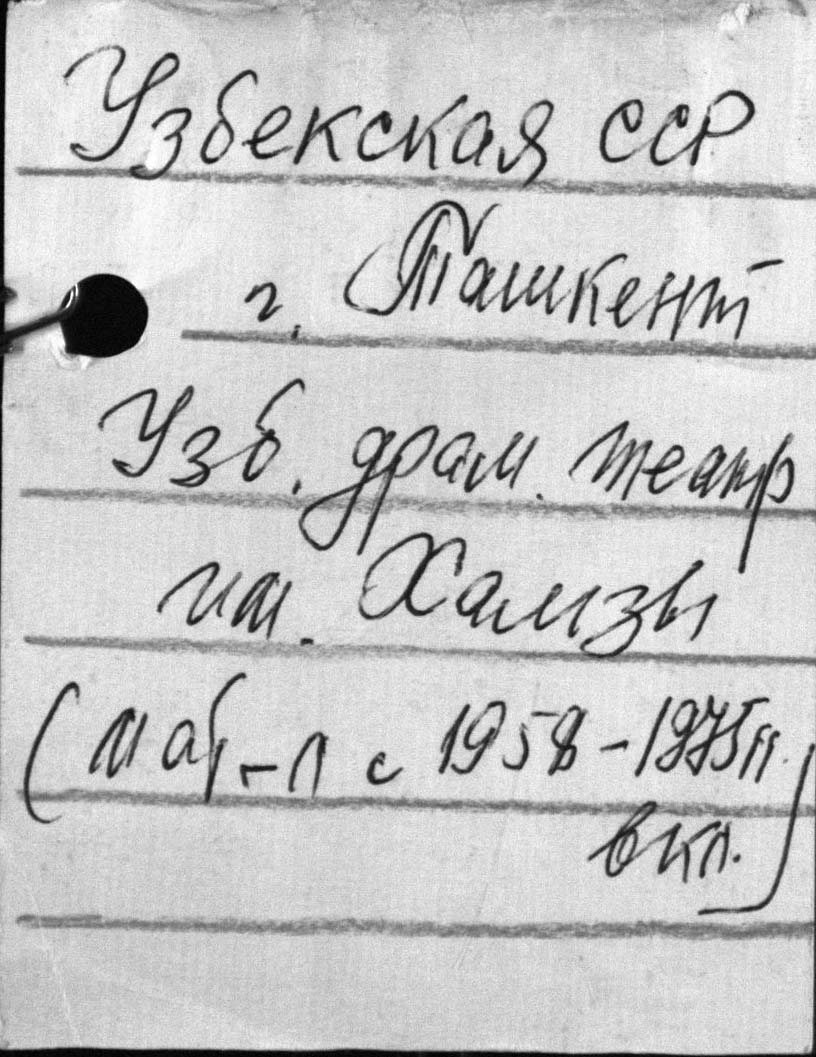 Узбекская ССР
г. Ташкент
Узб. драм. театр
им. Хамзы
(маб-л с 1958-1975 гг.
вкл.)